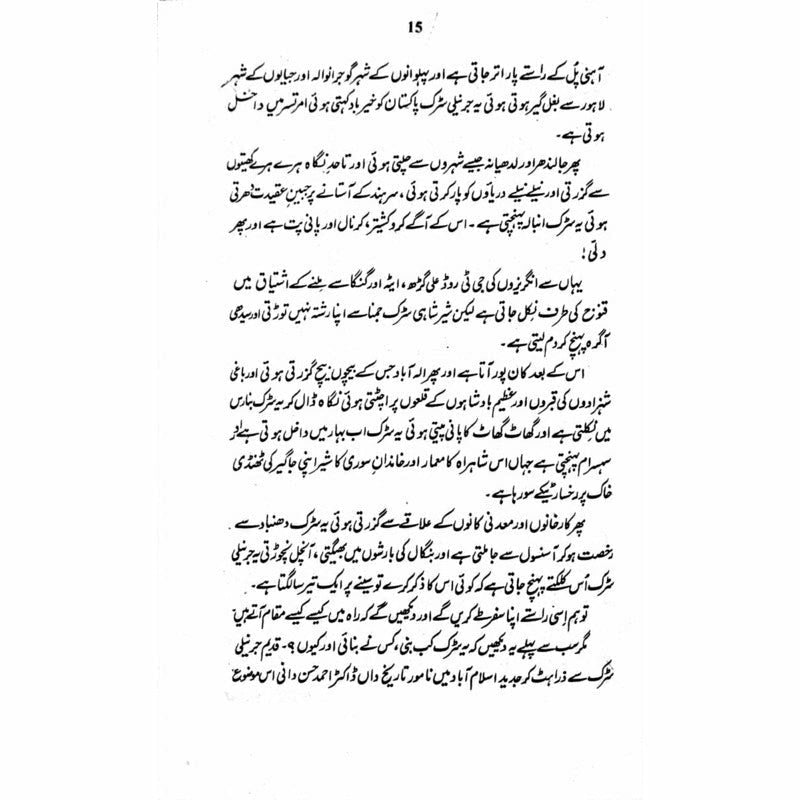 15
آہنی پُل کے راستے پار اتر جاتی ہے اور پہلوانوں کے شہر گوجرانوالہ اور جیالوں کے شہر
لاہور سے بغل گیر ہوتی ہوئی یہ جرنیلی سڑک پاکستان کو خیرباد کہتی ہوئی امرتسر میں داخل
ہوتی ہے۔
پھر جالندھر اور لدھیانہ جیسے شہروں سے چلتی ہوئی اور تاحدِ نگاہ ہرے ہرے کھیتوں
سے گزرتی اور نیلے نیلے دریاؤں کو پار کرتی ہوئی، سرہند کے آستانے پر جبینِ عقیدت دھرتی
ہوئی یہ سڑک انبالہ پہنچتی ہے۔ اس کے آگے کروکشیتر، کرنال اور پانی پت ہے اور پھر
دلّی!
یہاں سے انگریزوں کی جی ٹی روڈ علی گڑھ، ایٹہ اور گنگا سے ملنے کے اشتیاق میں
قنوج کی طرف نکل جاتی ہے لیکن شیر شاہی سڑک جمنا سے اپنا رشتہ نہیں توڑتی اور سیدھی
آگرہ پہنچ کر دم لیتی ہے۔
اس کے بعد کان پور آتا ہے اور پھر الہ آباد جس کے بیچوں بیچ گزرتی ہوئی اور باغی
شہزادوں کی قبروں اور عظیم بادشاہوں کے قلعوں پر اچٹتی ہوئی نگاہ ڈال کر یہ سڑک بنارس
میں نکلتی ہے اور گھاٹ گھاٹ کا پانی پیتی ہوئی یہ سڑک اب بہار میں داخل ہوتی ہے اور
سہسرام پہنچتی ہے جہاں اس شاہراہ کا معمار اور خاندانِ سوری کا شیر اپنی جاگیر کی ٹھنڈی
خاک پر رخسار ٹیکے سو رہا ہے۔
پھر کارخانوں اور معدنی کانوں کے علاقے سے گزرتی ہوئی یہ سڑک دھنباد سے
رخصت ہو کر آسنسول سے جا ملتی ہے اور بنگال کی بارشوں میں بھیگتی، آنچل نچوڑتی یہ جرنیلی
سڑک اُس کلکتے پہنچ جاتی ہے کہ کوئی اس کا ذکر کرے تو سینے پر ایک تیر سا لگتا ہے۔
تو ہم اِسی راستے اپنا سفر طے کریں گے اور دیکھیں گے کہ راہ میں کیسے کیسے مقام آتے ہیں
مگر سب سے پہلے یہ دیکھیں کہ یہ سڑک کب بنی، کس نے بنائی اور کیوں؟۔ قدیم جرنیلی
سڑک سے ذرا ہٹ کر جدید اسلام آباد میں نامور تاریخ داں ڈاکٹر احمد حسن دانی اس موضوع